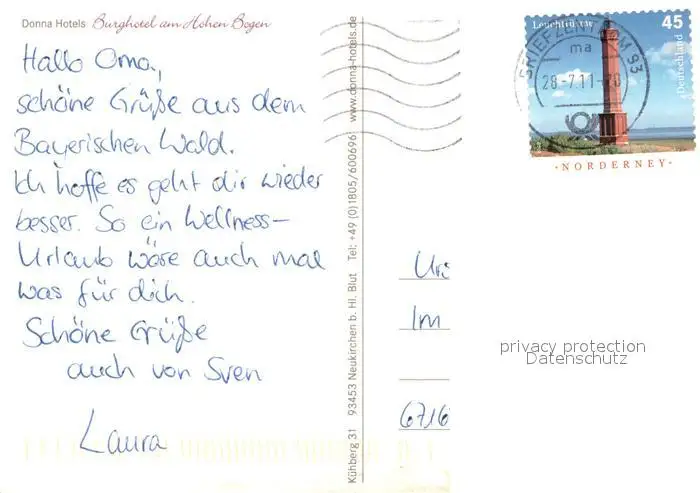 Donna Hotels Burghotel am Hohen Bogen
Hallo Oma,
schöne Grüße aus dem
Bayerischen Wald.
Ich hoffe es geht dir wieder
besser. So ein Wellness-
Urlaub wäre auch mal
was für dich.
Schöne Grüße
auch von Sven
Laura
Kühberg 31 93453 Neukirchen b. Hl. Blut Tel: +49 (0)1805/600696 www.donna-hotels.de
Leuchttürme 45
Deutschland
BRIEFZENTRUM 93
ma
28.-7.11-20
·NORDERNEY·
Im
6716
privacy protection
Datenschutz